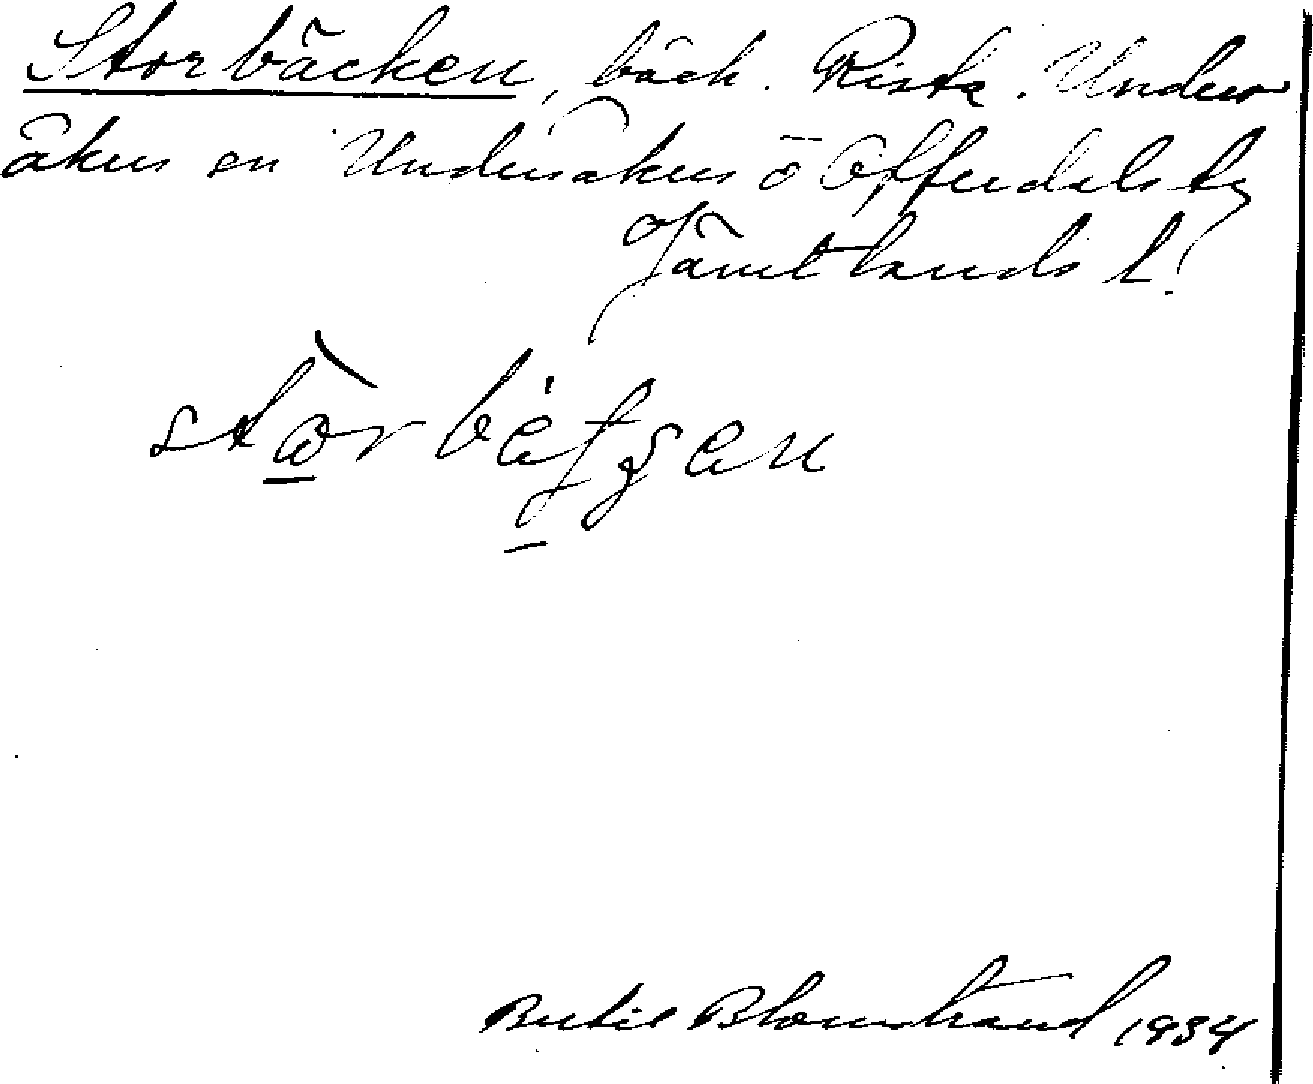 Storbäcken, bäck. Rista. Under
åkers sn Undersåkers o Offerdals tg
Jämtlands l.
Bertil Blomstrand 1934